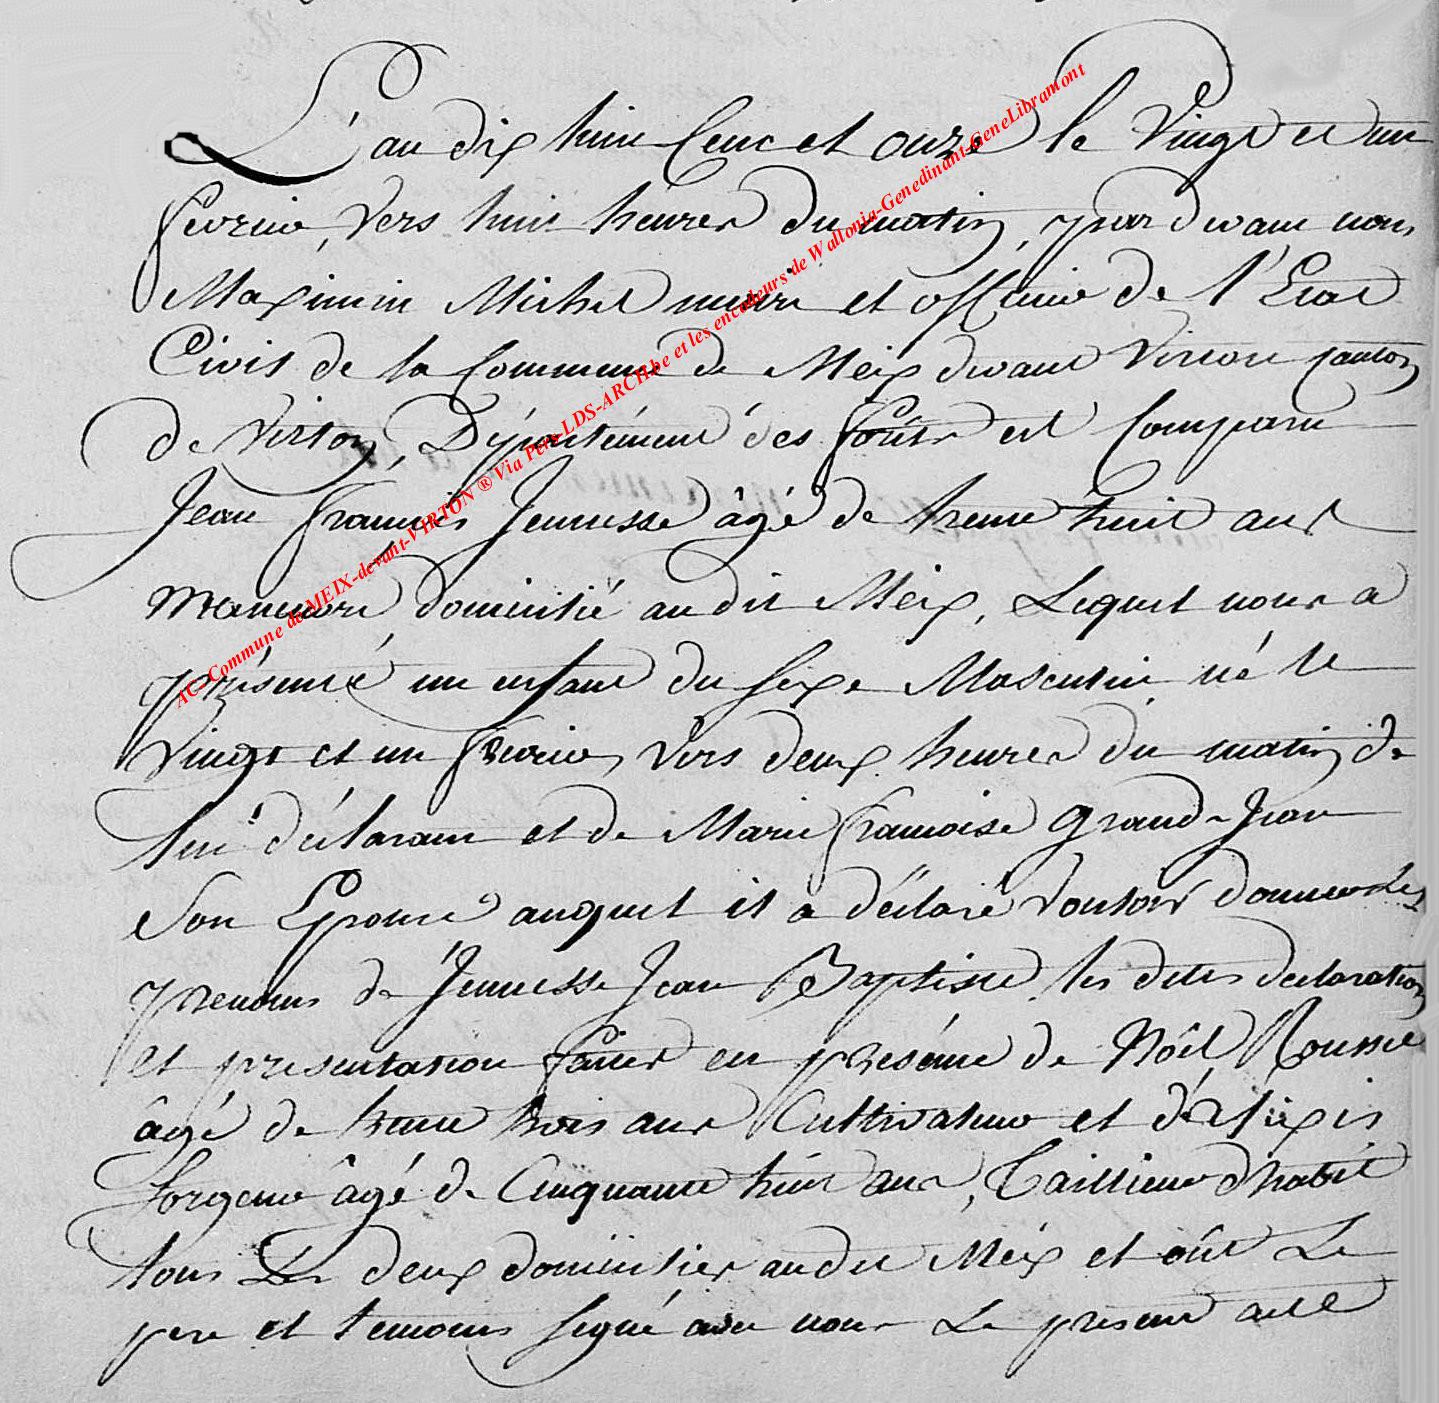 L'an dix huit Cent et onze le Vingt et un
fevrier, vers huit heures du matin, par devant nous
Maximin Michel maire et officier de l'Etat
Civil de la Commune de Meix devant Virton Canton
de Virton, Département des forêts est Comparu
Jean françois Jeunesse âgé de trente huit ans
manuvre domicilié au dit Meix, Lequel nous a
présenté un enfant du sexe Masculin né le
Vingt et un fevrier, Vers deux heures du matin de
lui déclarant et de Marie françoise Grand-Jean
Son Epouse auquel il a déclaré Vouloir donner les
prenoms de Jeunesse Jean Baptiste les dites declaration
et presentation faites en présence de Nôël Rousse
âgé de trente trois ans Cultivateur et d'Alexis
âgé de Cinquante huit ans, Taillieur d'habit
tous Les deux domicilies audit Meix et ont Le
pere et temoins signé avec nous Le present acte
AC-Commune de MEIX-devant-VIRTON ® Via Pers-LDS-ARCH.be et les encodeurs de Wallonia-Genedinant-GeneLibramont